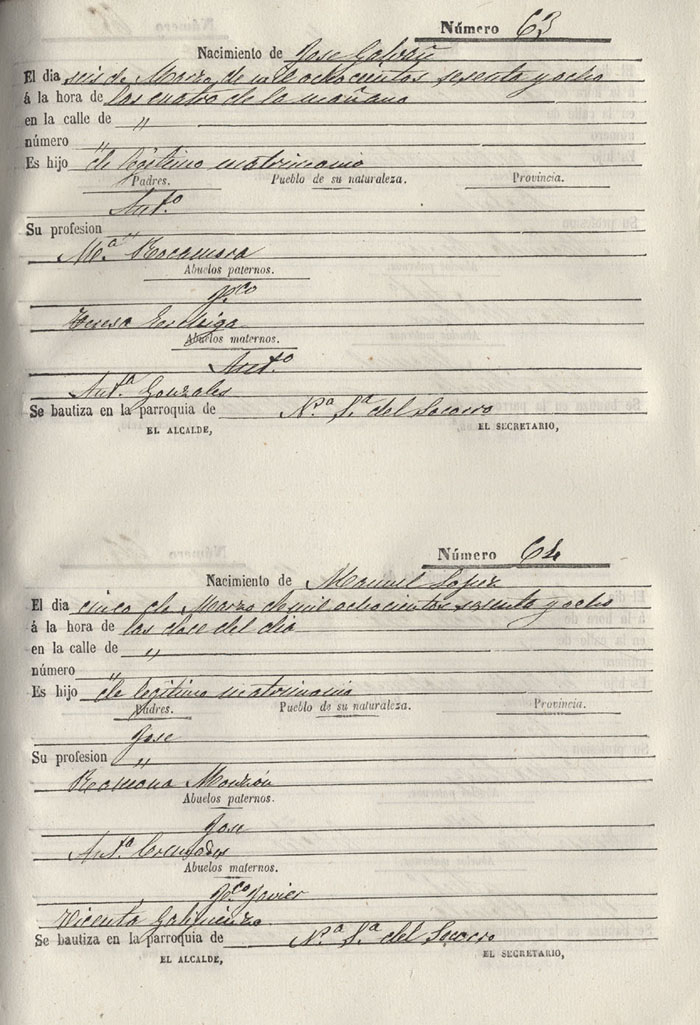 Número 63
Nacimiento de Jose Galvañ
El dia seis de Marzo de mil ochocientos sesenta y ocho
á la hora de las cuatro de la mañana
en la calle de „
número „
Es hijo de legítimo matrimonio
Padres. Pueblo de su naturaleza. Provincia.
Antº
Su profesion „
Mª Rocamora
Abuelos paternos.
Fco
Teresa
Abuelos maternos.
Antº
Antª Gonzales
Se bautiza en la parroquia de Nª Sª del Socorro
EL ALCALDE, EL SECRETARIO,
Número 64
Nacimiento de Manuel Lopez
El dia cinco de Marzo de mil ochocientos sesenta y ocho
á la hora de las doce del dia
en la calle de „
número „
Es hijo de legítimo matrimonio
Padres. Pueblo de su naturaleza. Provincia.
Jose
Su profesion „
Ramona Monzón
Abuelos paternos.
Jose
Antª Cremades
Abuelos maternos.
Fco Javier
Vicenta
Se bautiza en la parroquia de Nª Sª del Socorro
EL ALCALDE, EL SECRETARIO,